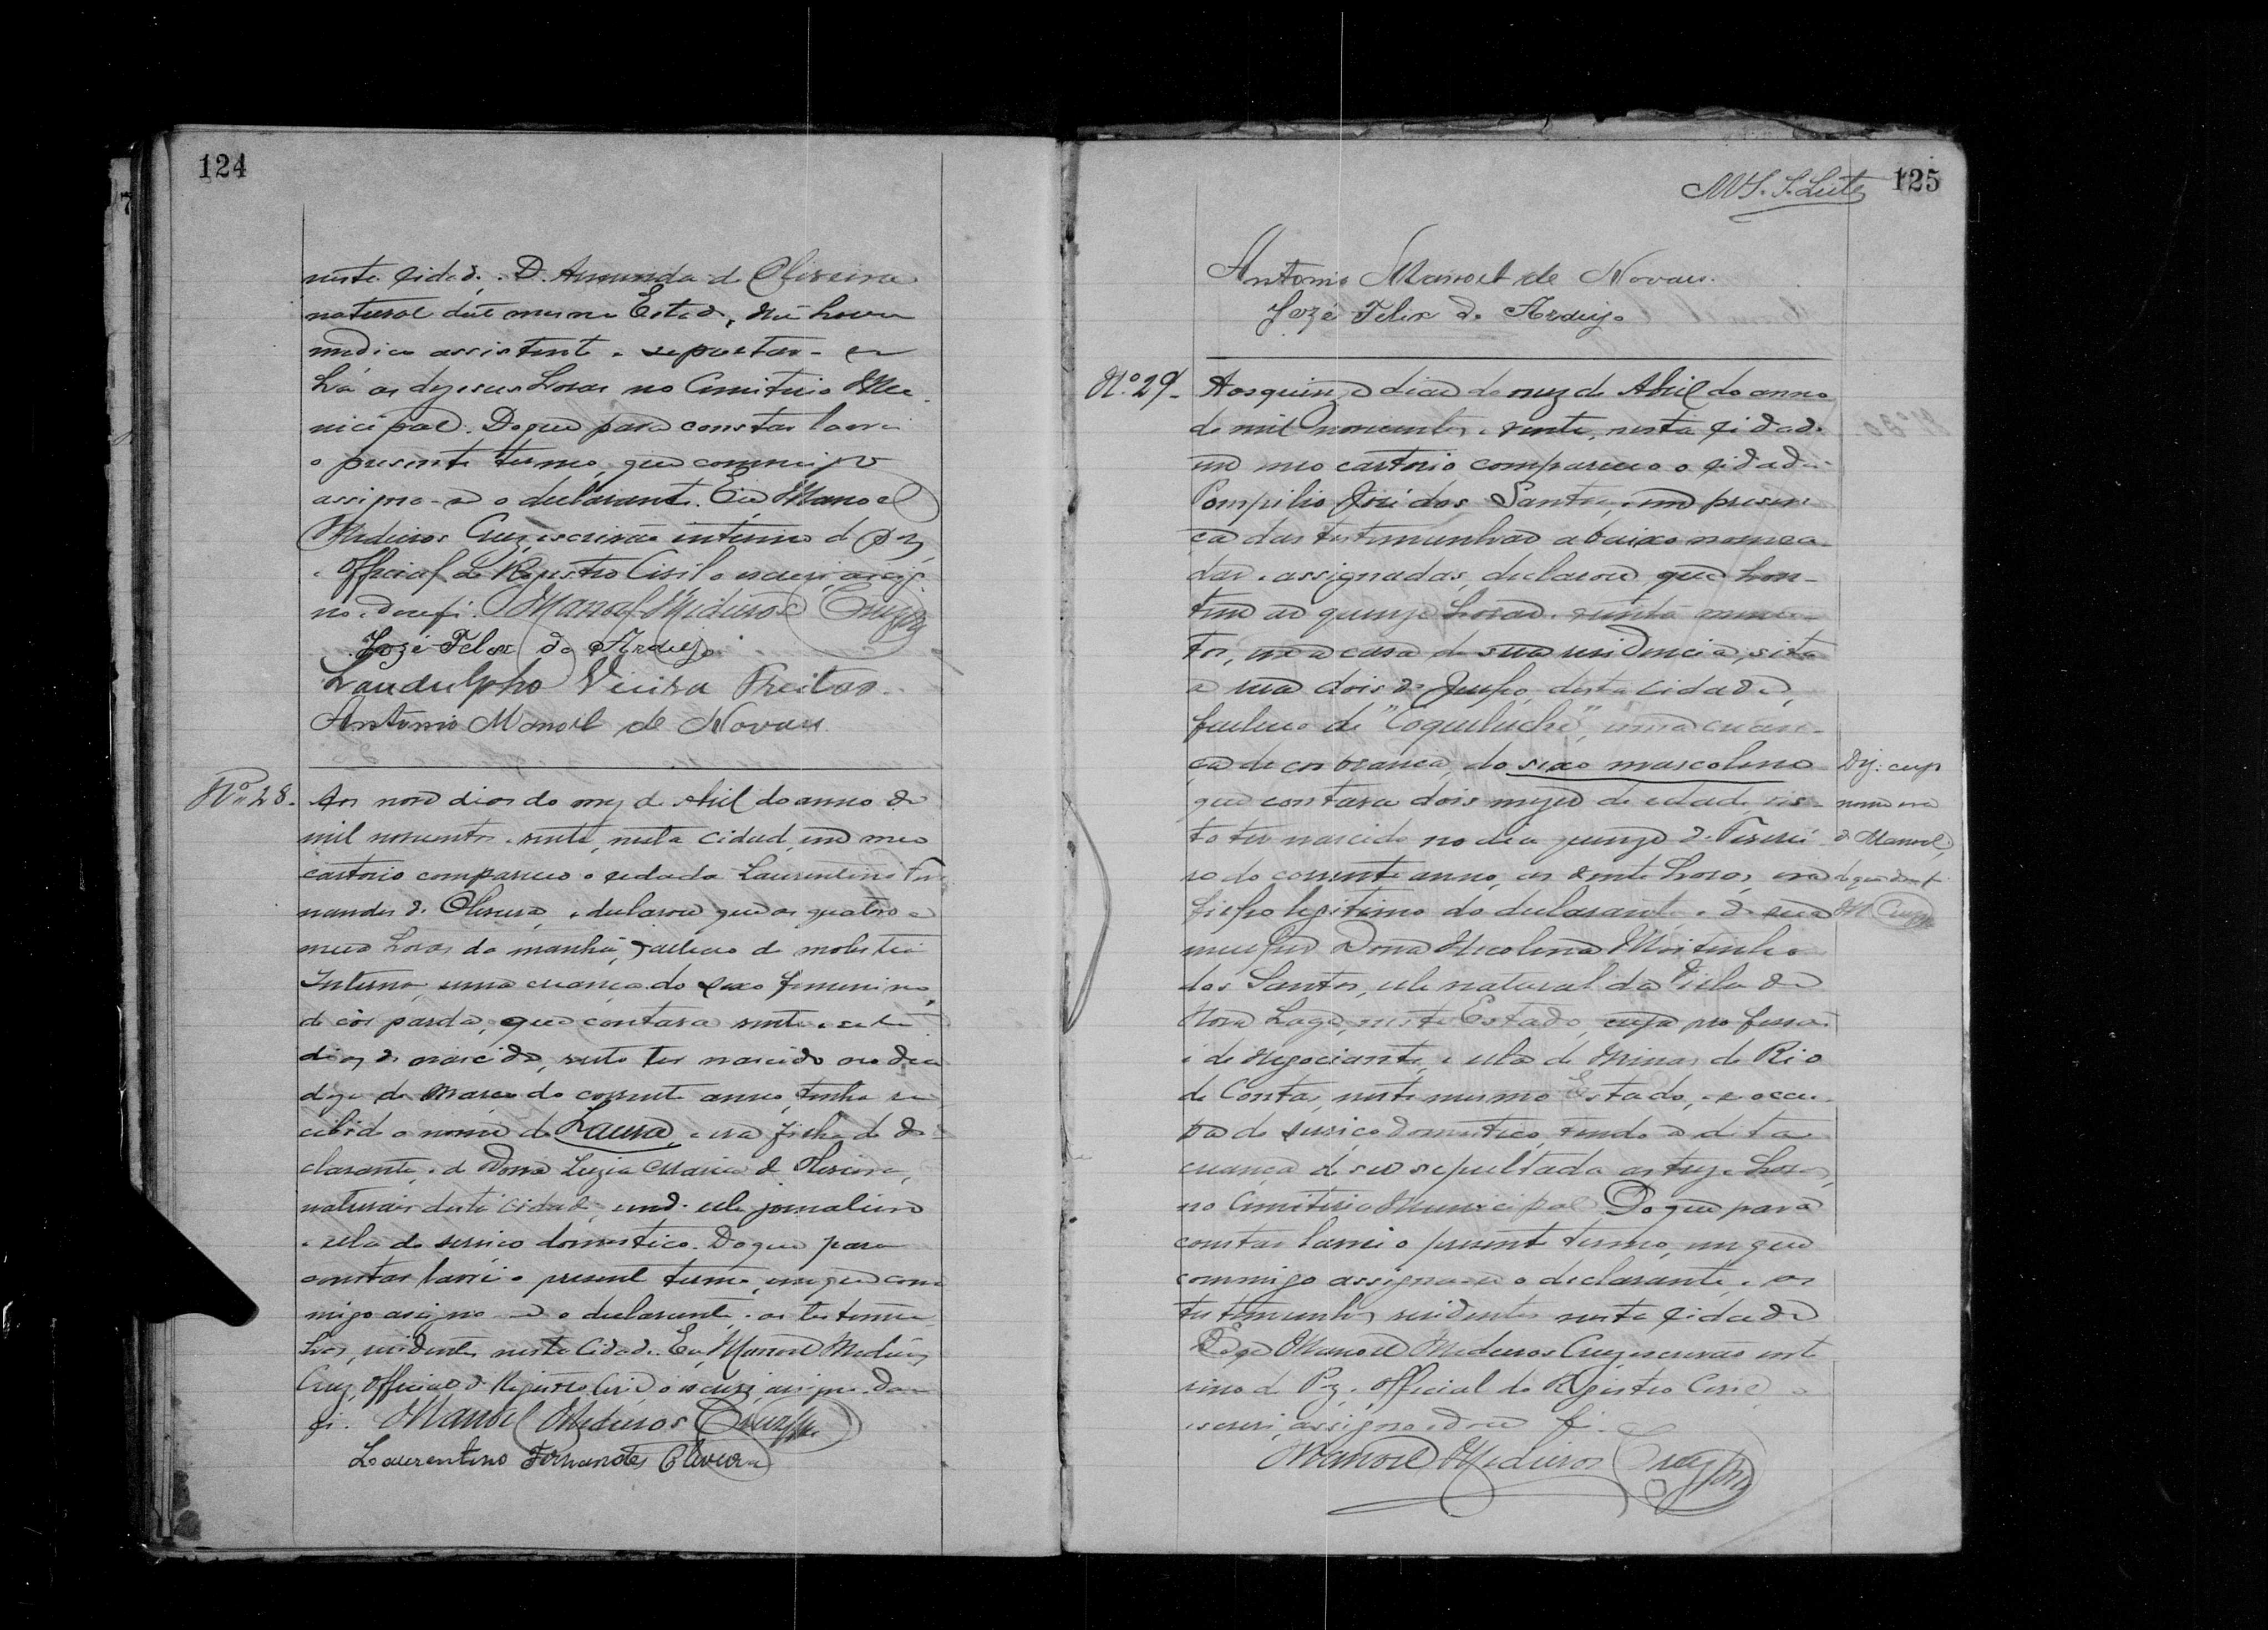 124
nesta cidade, D. Amanda de Oliveira
natural deste mesmo Estado, não houve
medico assistente e sepultar-se
há as dezeseis horas no Cemiterio Mu-
nicipal. Do que para constar lavrei
o presente termo, que commigo
assigna-se o declarante. Eu, Manoel
Medeiros Cruz, escrivão interino de Paz,
e Official do Registro Civil o escrevi, assig-
no e dou fé. Manoel Medeiros Cruz
José Felix de Araujo
Landulpho Vieira Freitas
Antonio Manoel de Novaes
Nº 28. Aos nove dias do mez de Abril do anno de
mil novecentos e vinte, nesta cidade, em meo
cartorio compareceo o cidadão Laurentino Fer
nandes de Oliveira, e declarou que as quatro e
meia horas da manhã, falleceo de molestia
Interna, uma creança do sexo feminino,
de côr parda, que contava vinte e sete
dias de nascida, visto ter nascido no dia
doze de Março do corrente anno, tinha re
cebido o nome de Laura, e era filha do de
clarante, e de Dona Luzia Maria de Oliveira,
naturaes desta cidade, sendo elle jornaleiro
e ella de serviço domestico. Do que para
constar lavrei o presente termo, em que com
migo assigna-se o declarante, e as testemu
nhas, residentes nesta Cidade. Eu, Manoel Medeiros
Cruz, Official do Registro Civil o escrevi, assigno e dou
fé. Manoel Medeiros Cruz
Laurentino Fernandes Oliveira
125
Antonio Manoel de Novaes.
José Felix de Araujo
Nº 29. Aos quinze dias do mez de Abril do anno
de mil novecentos e vinte, nesta cidade
em meo cartorio compareceo o cidadão
Pompilio José dos Santos, e em presen
ça das testemunhas abaixo nomea
das e assignadas, declarou que hon-
tem as quinze horas e trinta minu-
tos, em a casa de sua residencia, sita
a rua dois de Julho, desta cidade,
falleceo de "Coqueluche", uma crean-
ça de cor branca, do sexo masculino
que contava dois mezes de edade vis-
to ter nascido no dia quinze de Feverei
ro do corrente anno, as vinte horas, era
filho legitimo do declarante e de sua
mulher Dona Mecolina Moitinho
dos Santos, elle natural da Villa de
Nova Lage, neste Estado, cuja profissão
é de negociante, e ella de Minas do Rio
de Contas, neste mesmo Estado, e se occu
pa de serviço domestico, tendo a dita
creança de ser sepultada as treze horas,
no Cemiterio Municipal. Do que para
constar lavrei o presente termo, em que
commigo assigna-se o declarante, e as
testemunhas residentes nesta cidade
Eu, Manoel Medeiros Cruz, escrivão inte
rino de Paz, e Official do Registro Civil, o
escrevi, assigno e dou fé.
Manoel Medeiros Cruz
Digo: cujo
nome era
de Manoel,
do que dou fé
M Cruz